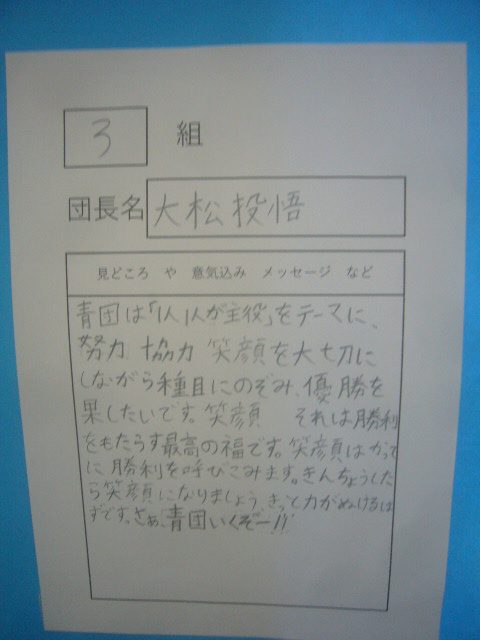 3 組
団長名 大松投悟
見どころ や 意気込み メッセージ など
青団は「1人1人が主役」をテーマに、
努力 協力 笑顔を大切に
しながら種目にのぞみ、優勝を
果したいです。笑顔 それは勝利
をもたらす最高の福です。笑顔はかって
に勝利を呼びこみます。きんちょうした
ら笑顔になりましょう、きっと力がぬけるは
ずです。さぁ、「青団いくぞー!!」